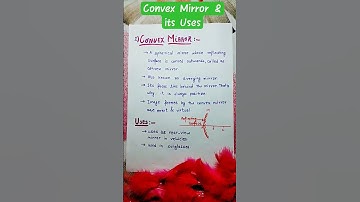 Convex Mirror &
its Uses
CONVEX MIRROR:-
→ A spherical mirror whose reflecting
surface is curved outwards, called as
convex mirror
→ Also known as diverging mirror
→ Its focus lies behind the mirror that's
why it is always positive
→ Image formed by the convex mirror
are erect & virtual
Uses:-
→ used as rear-view
mirror in vehicles
→ used in sunglasses